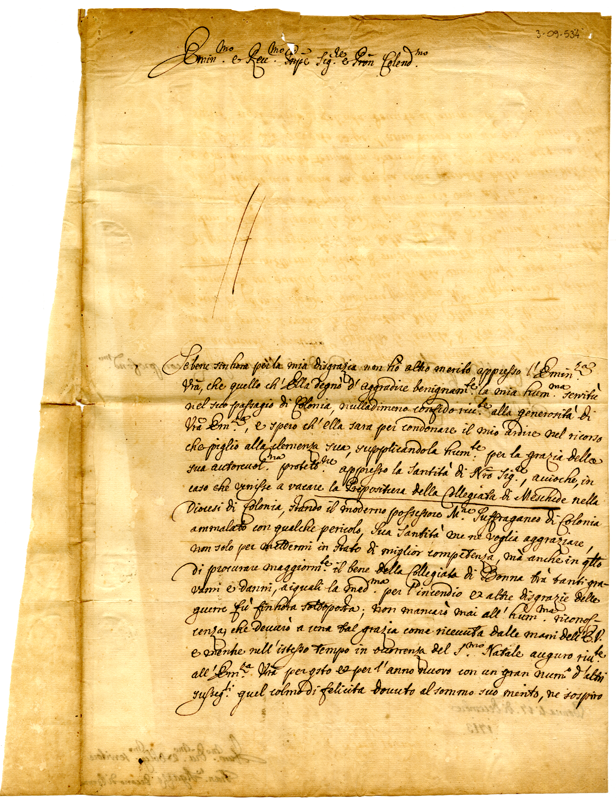 3-09-534
Emin.mo e Rev.mo Sig.re e Pron Colend.mo
Sebene sinhora per la mia disgrazia non hò altro merito appresso l'Emin.za
Vra, che quello ch'Ella degnò d'aggradire benignam.te la mia hum.ma servitù
nel suo passagio di Colonia, nulladimeno confido riv.te alla generosità di
Vra Em.za, e spero ch'ella sara per condonare il mio ardire nel ricorso
che piglio alla clemenza sua, supplicandola hum.te per la grazia della
sua autorevol.ma protet.ne appresso la Santità di Nro Sig.re, accioche, in
caso che venisse a vacare la Prepositura della Collegiale di Meschede nella
Diocesi di Colonia, stando il moderno possessore M.re Suffraganeo di Colonia
ammalato con qualche pericolo, Sua Santità me ne voglia aggraziare,
non solo per mettermi in stato di miglior competenza, mà anche in
di procurare maggiorm.te il bene della Collegiata di Bonna frà tanti gra-
vami e danni, aiquali la med.ma per l'incendio et altre disgrazie delle
guerre fiù sinhora sottoposta. Non mancarò mai all'hum.ma riconos-
cenza, che dovarò a una tal grazia come ricevuta dalle mani dell'E.V.
e mentre nell'istesso tempo in occorrenza del S.mo Natale auguro riv.te
all'Em.za Vra per qsto et per l'anno nuovo con un gran num.o d'altri
susseg.ti quel colmo di felicità dovuto al sommo suo merito, ne sospiro
1713